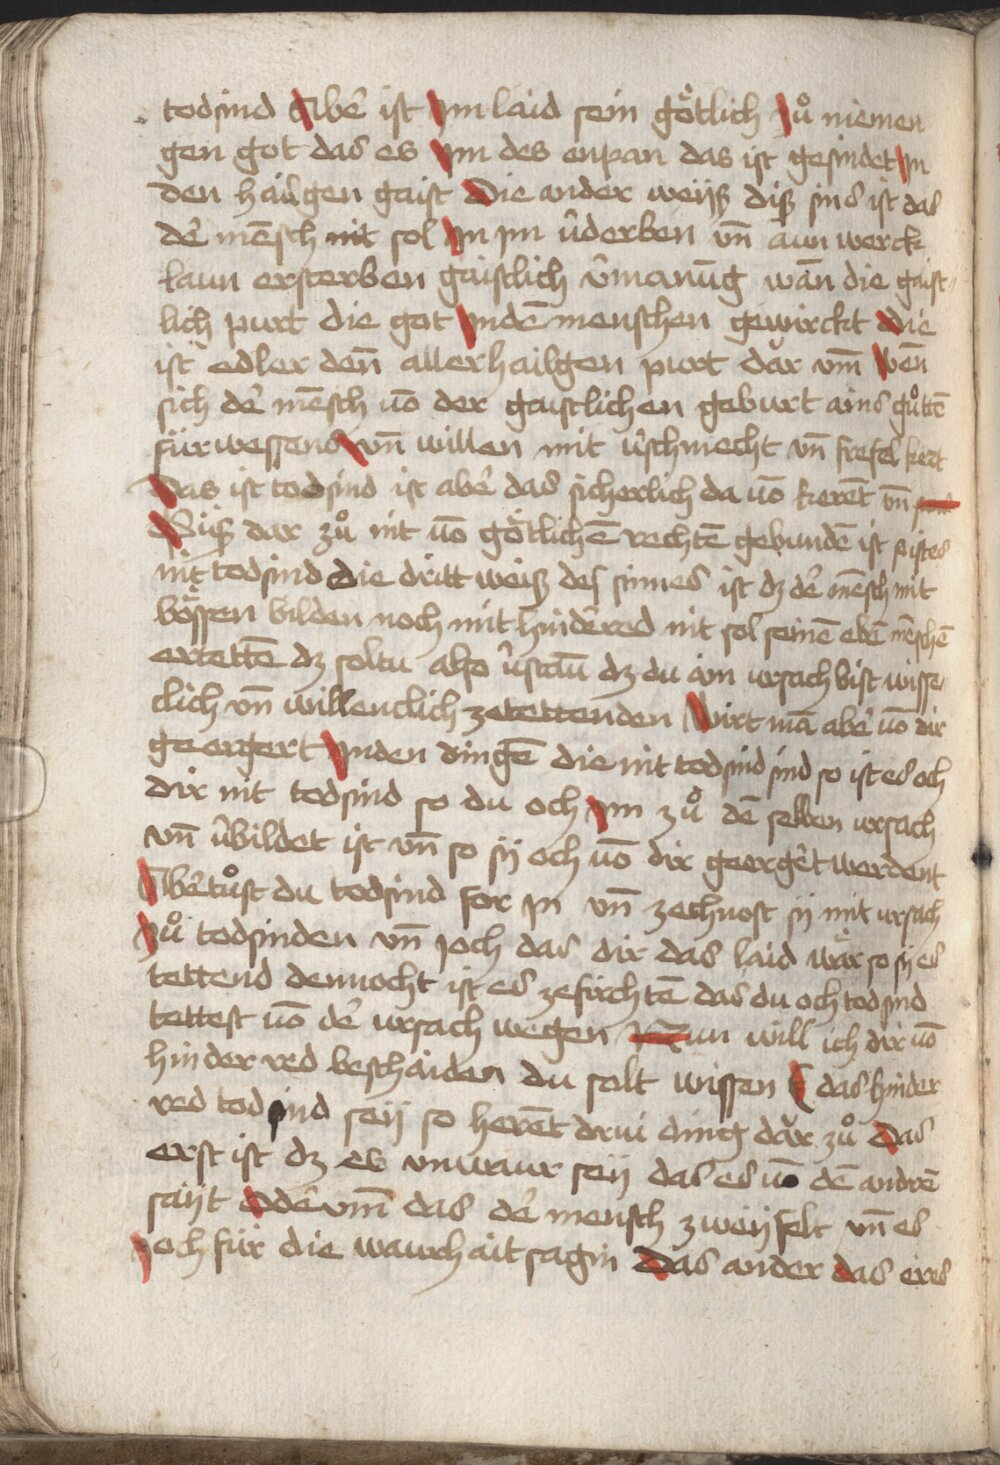 todsind Abẻ ist Im laid sein gőtlich zů niemen
gen got das es Im des enpan das ist gesindet in
den hailgen gaist Die ander weijß diß sins ist das
dẻ mēsch nit sol In im v̂derben vn̄ aun werck
laun ersterben gaistlich v̂manūg wān die gaist
lich purt die got Indē menschen gewirckt die
ist edler den̄ allerhailgen purt dǎr vm̄ wen̄
sich dẻ mēsch uō der gaistlichen geburt ains gůttē
fürwessens vn̄ willen mit v̂schmecht vn̄ frefel kert
Das ist todsind ist abẻ das sicherlich da uō kerēt vn̄
Biß dar zů nit uō gőtlichē rechtē gebundē ist so ist es
nit todsind die dritt weiß des sinnes ist dz dẻ mēsch mit
bőssen bilden noch mit hindẻred nit sol seinē ebē mēschē
ertettē dz soltu also v̂stān dz du ain ursach bist wisse
clich vn̄ willenclich zetettenden Wirt mā abẻ uō dir
geergert Inden dingē die nit todsind sind so ist es och
dir nit todsind so du och im zů dē selben ursach
vn̄ v̂bildet ist vn̄ so sij och uō dir geergẻt werdent
Abẻ tůst du todsind for in vn̄ zechnost sij mit ursach
zů todsinden vn̄ joch das dir das laid wǎr so sij es
tettend dennocht ist es zefirchtē das du och todsind
tettest uō dẻ ursach wegen Nun will ich dir uō
hinder red beschaiden du solt wissen das hinder
red todsind seij so herēt drui ding dǎr zů Das
erst ist dz es unwaur seij das es uō dē andrē
sayt oddẻ vm̄ das dẻ mensch zweijfelt vn̄ es
joch für die waurhait sagin Das ander das eres